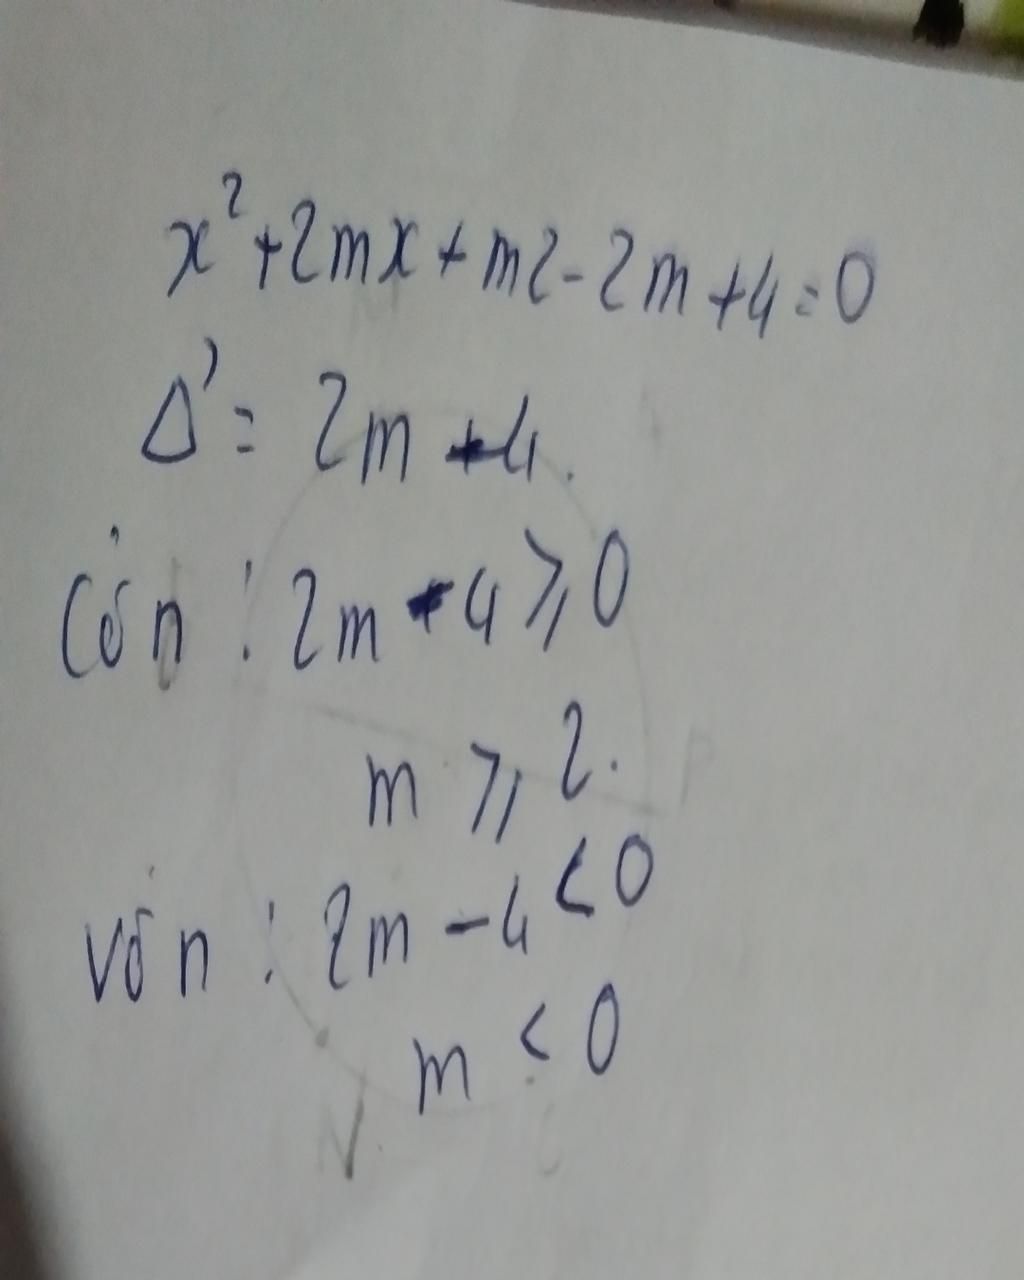 x² + 2mx + m2 - 2m + 4 = 0
Δ' = 2m - 4.
Có n : 2m - 4 ⩾ 0
m ⩾ 2.
Vô n : 2m - 4 < 0
m < 0
N